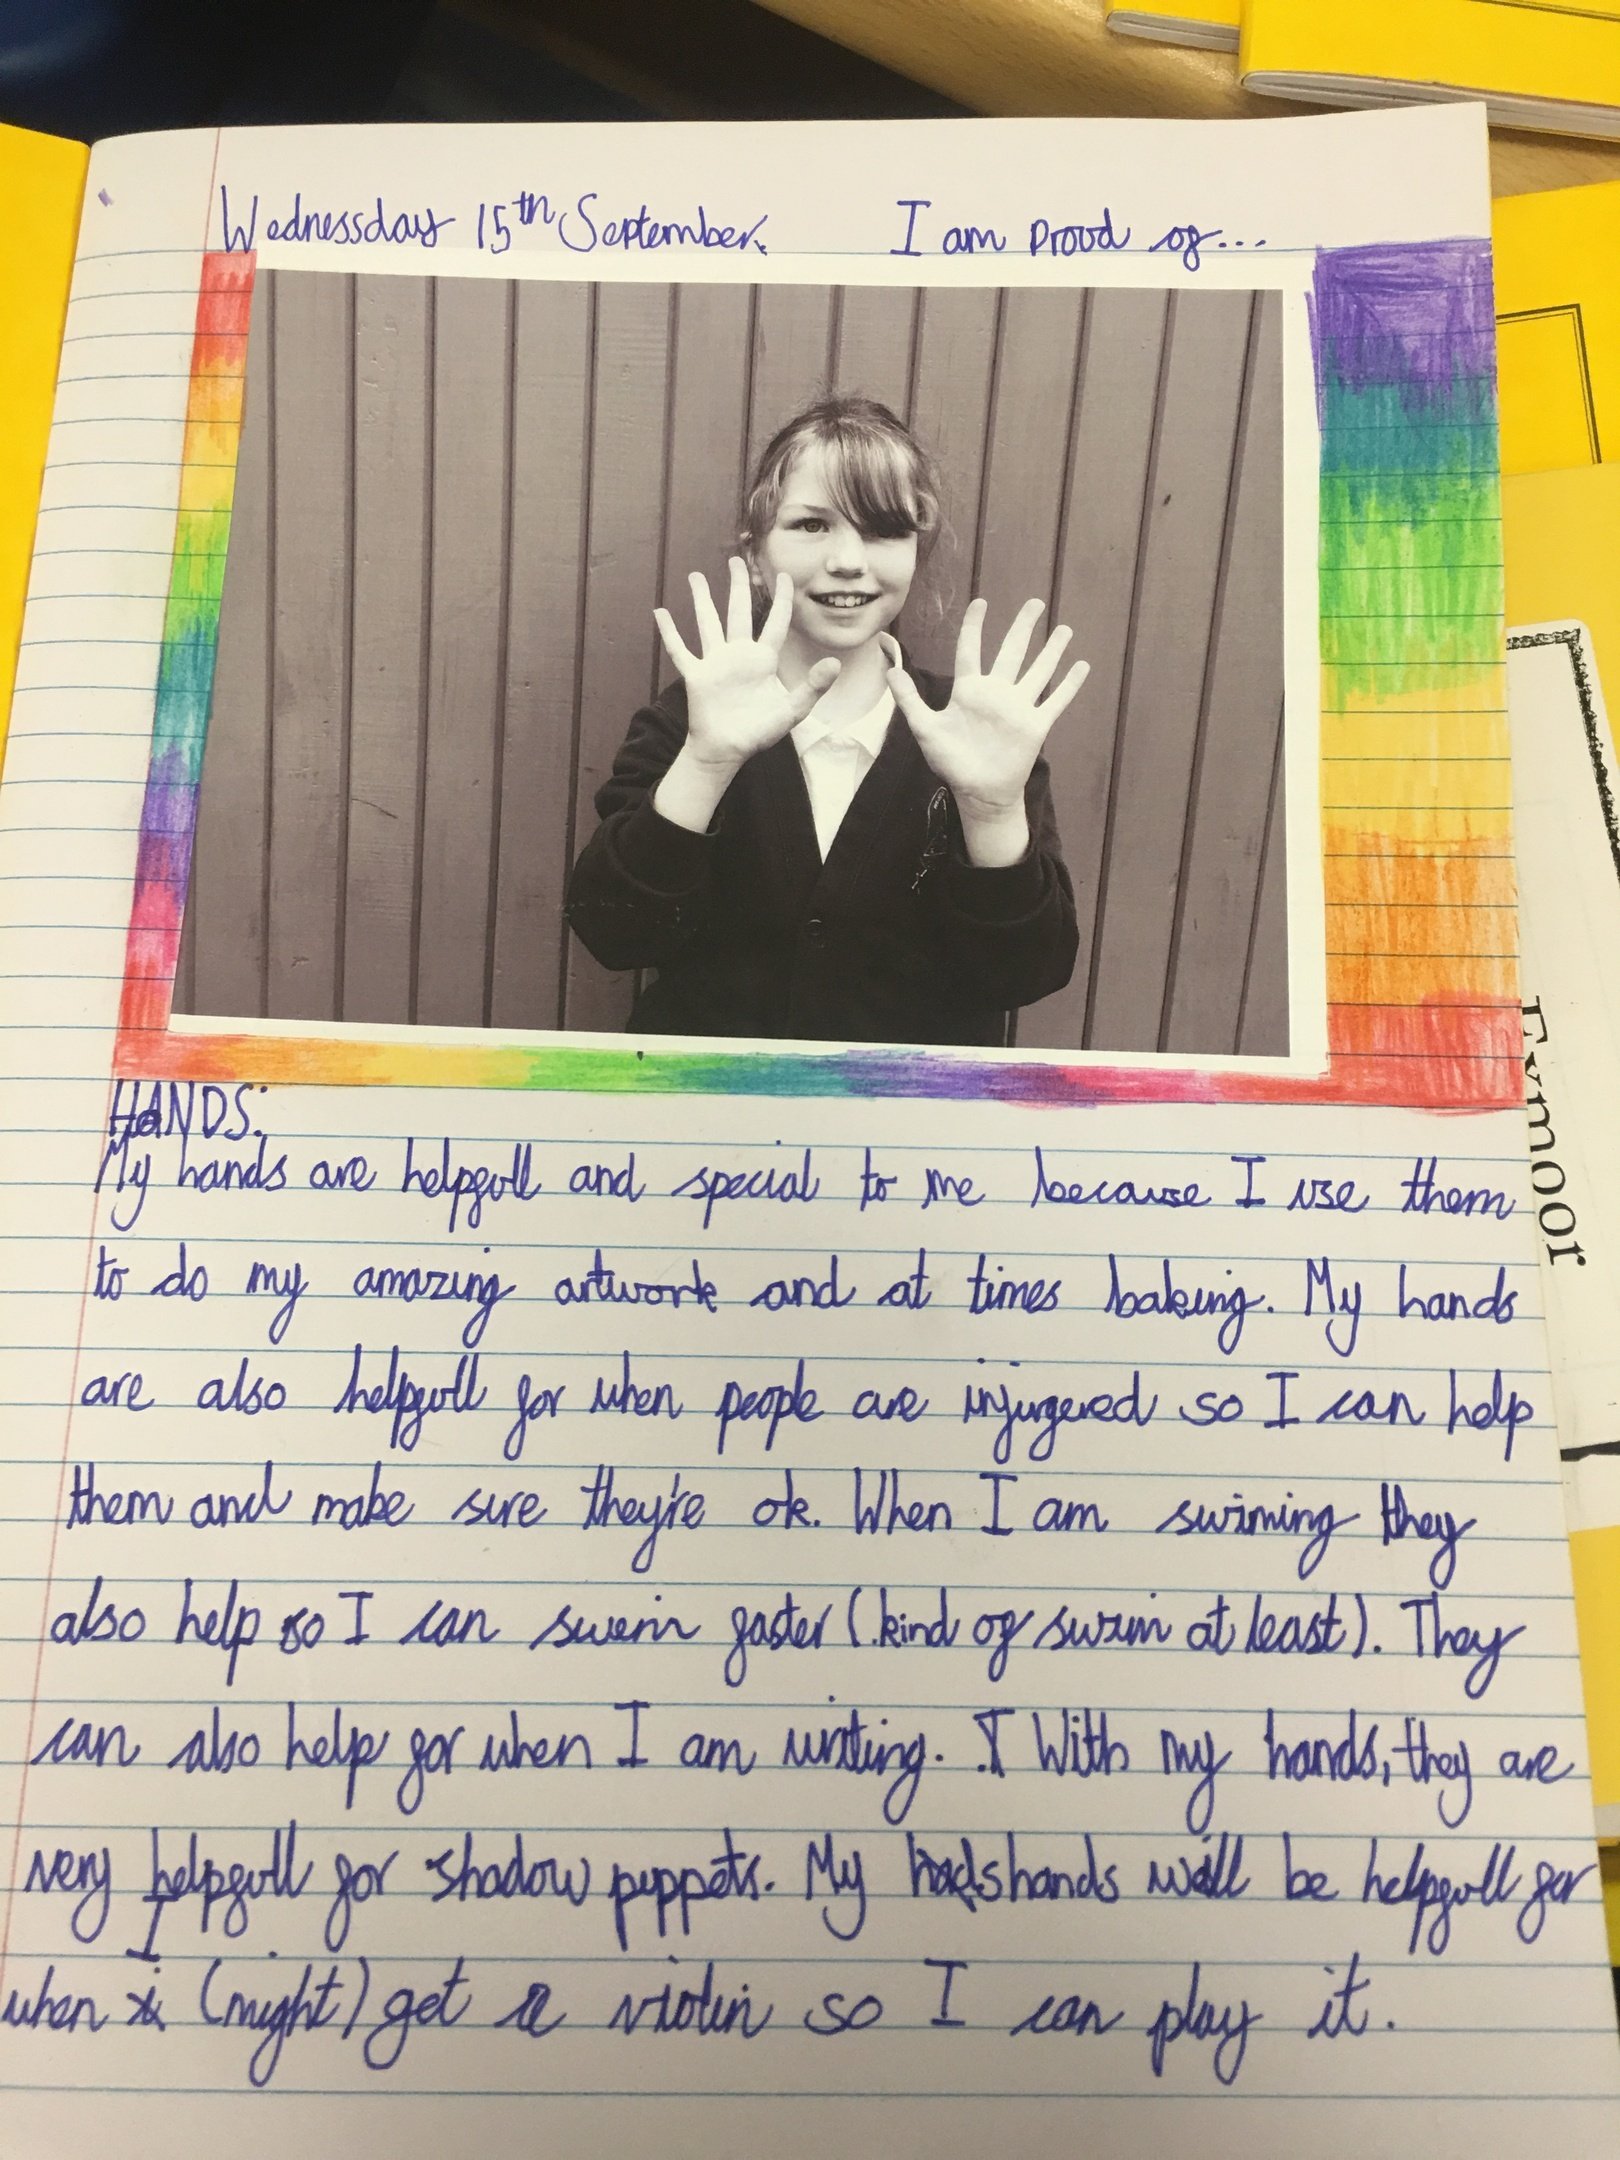 Wednessday 15th September. I am proud of...
HANDS:
My hands are helpfull and special to me because I use them
to do my amazing artwork and at times baking. My hands
are also helpfull for when people are injurgered so I can help
them and make sure they're ok. When I am swiming they
also help so I can swim faster (kind of swim at least). They
can also help for when I am writing. I With my hands, they are
very helpfull for shadow puppets. My hads hands will be helpfull for
when I (might) get a violin so I can play it.
Exmoor